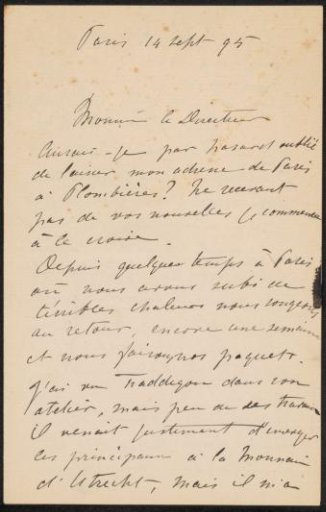 Paris 14 Sept 95
Monsieur le Directeur
Aurais-je par hasard oublié
de laisser mon adresse de Paris
à Plombières? Ne recevant
pas de vos nouvelles je commence
à le croire.
Depuis quelque temps à Paris
où nous avons subi de
terribles chaleurs nous songeons
au retour, encore une semaine
et nous faisons nos paquets.
J'ai vu dans son
atelier, mais peu de ses travaux
il venait justement d'envoyer
les principaux à la
d'Utrecht, mais il m'a